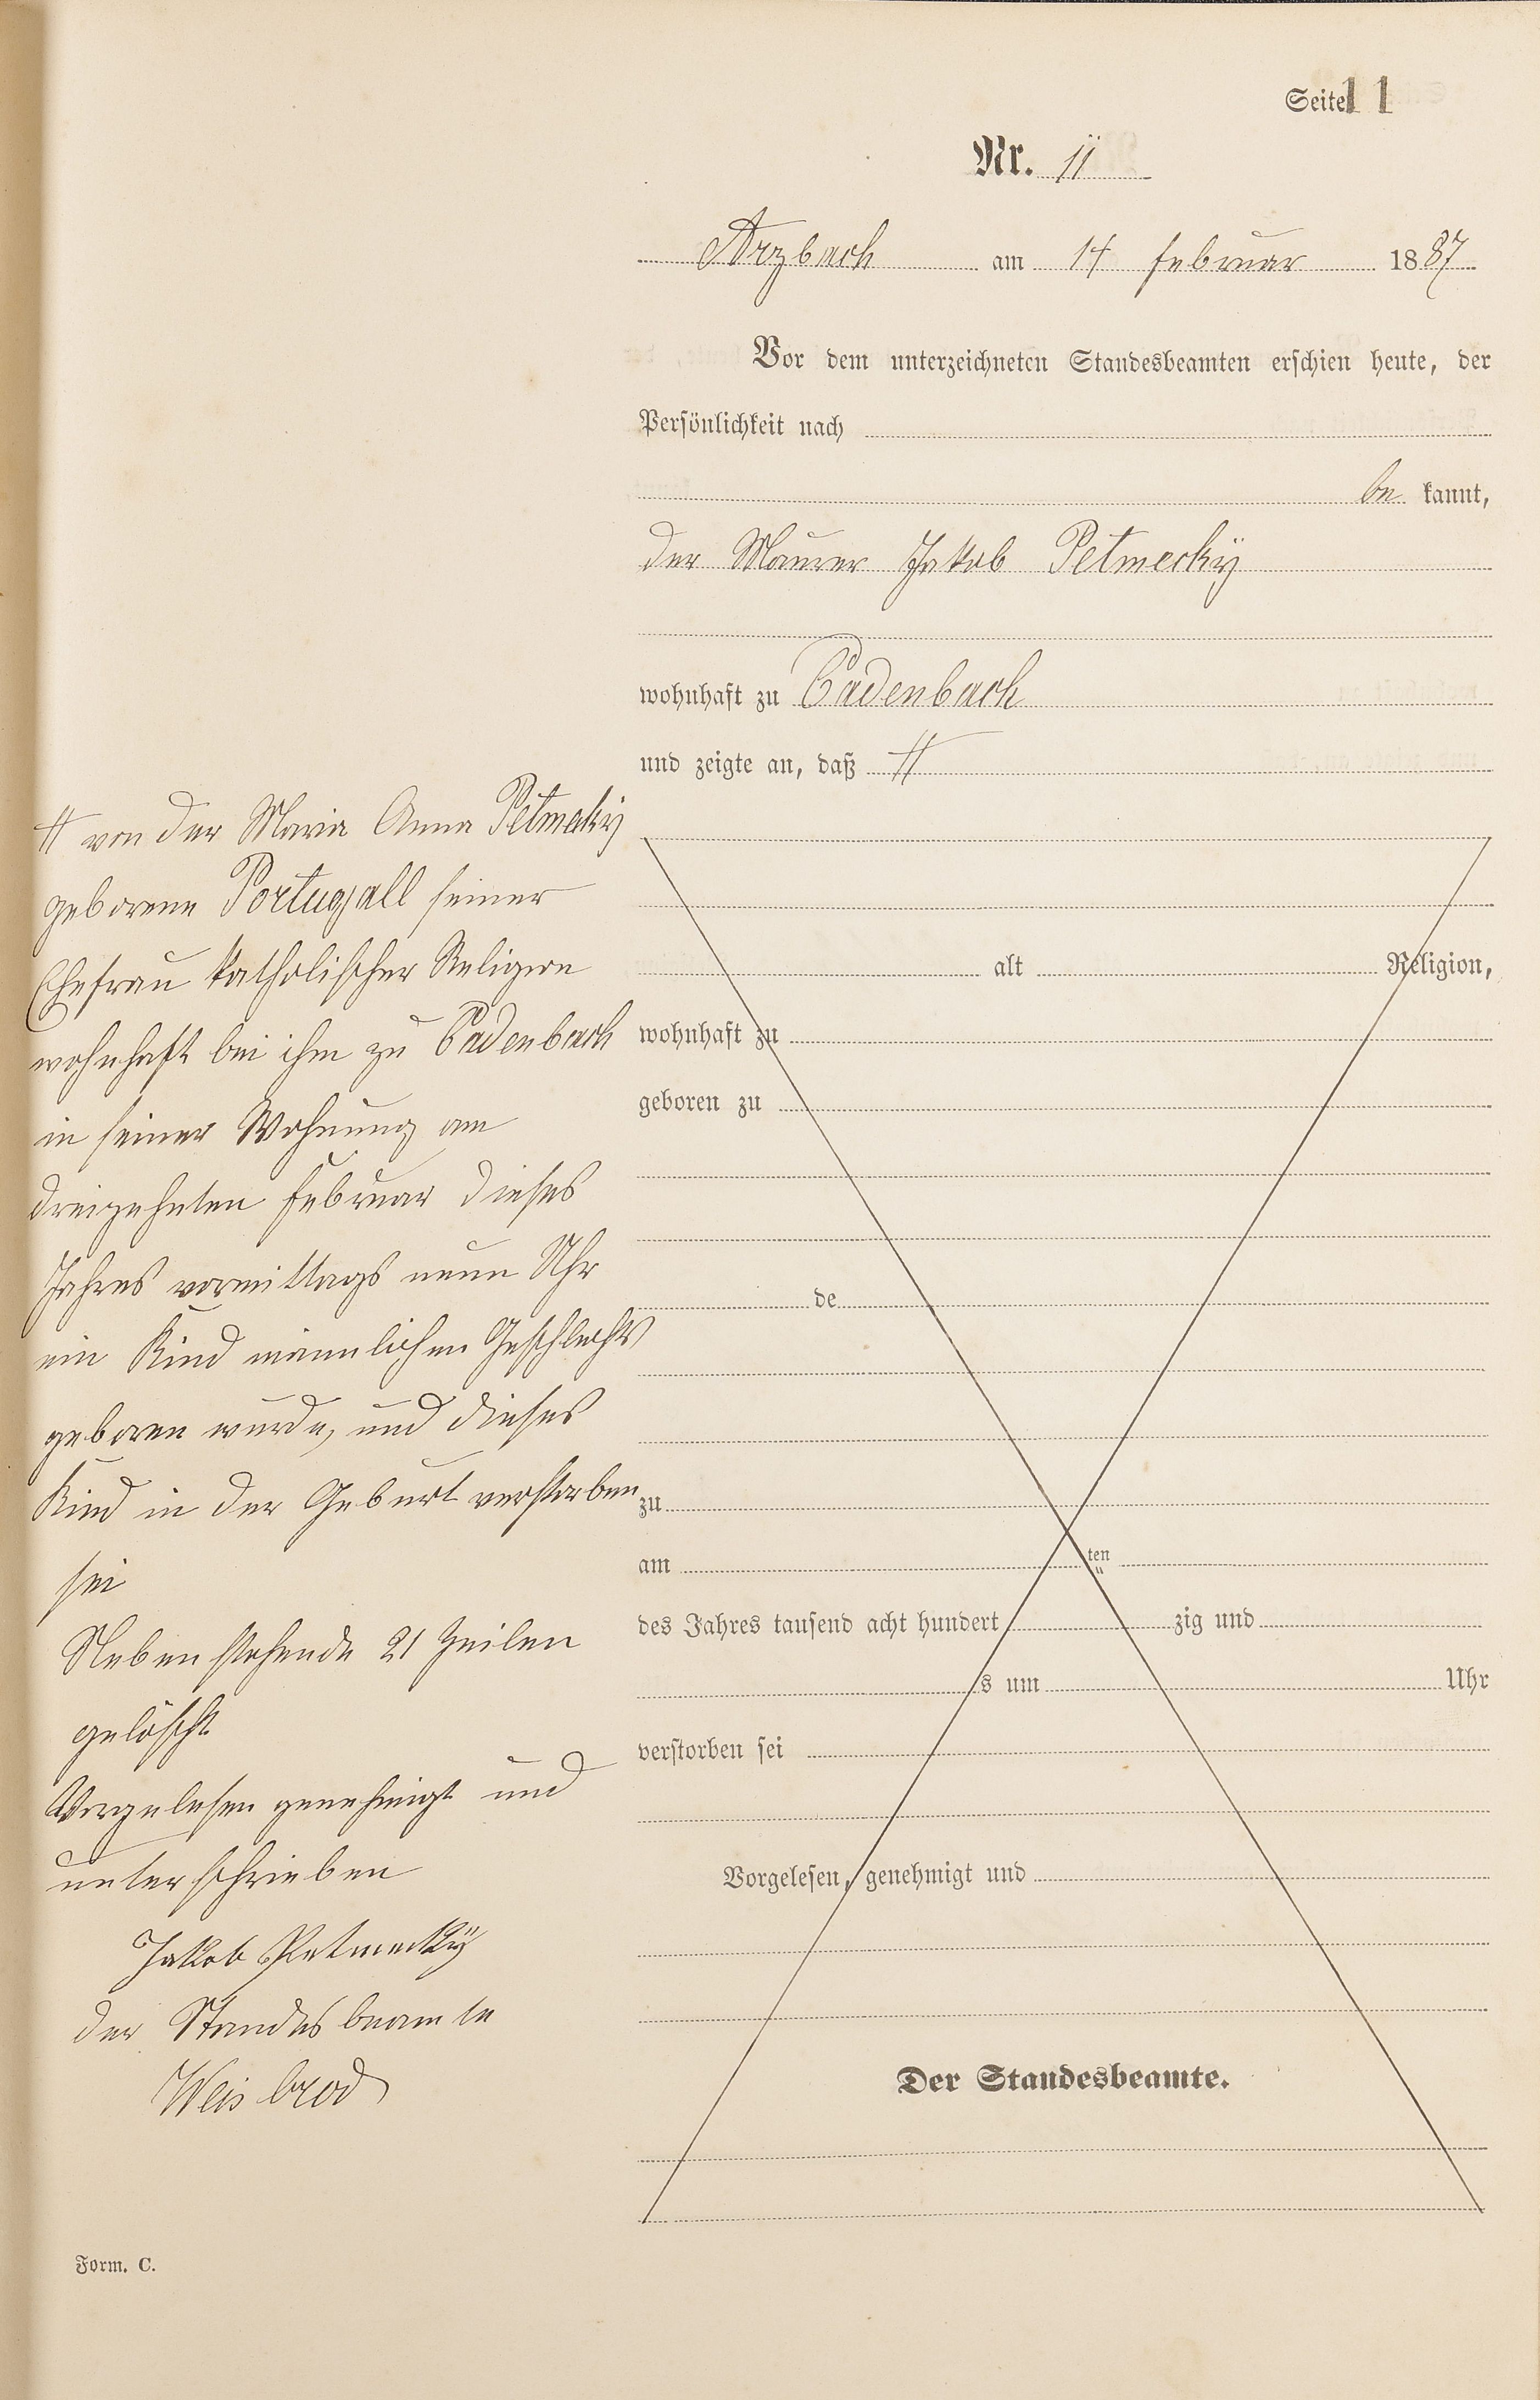 Seite 11
Nr. 11
Arzbach am 14 Februar 1887
Vor dem unterzeichneten Standesbeamten erschien heute, der
Persönlichkeit nach
be kannt,
der Maurer Jakob Petmecky
wohnhaft zu Cadenbach
und zeigte an, daß #
# von der Maria Anna Petmeky
geborene Portugall seiner
Ehefrau katholischer Religion
wohnhaft bei ihm zu Cadenbach
in seiner Wohnung am
dreizehnten Februar dieses
Jahres vormittags neun Uhr
ein Kind männlichen Geschlechts
geboren wurde, und dieses
Kind in der Geburt verstorben
sei
Nebenstehende 21 Zeilen
gelöscht
Vorgelesen genehmigt und
unterschrieben
Jakob Petmecky
der Standesbeamte
Weisbrod
alt Religion,
wohnhaft zu
geboren zu
de
zu
am ten
des Jahres tausend acht hundert zig und
s um Uhr
verstorben sei
Vorgelesen, genehmigt und
Der Standesbeamte.
Form. C.